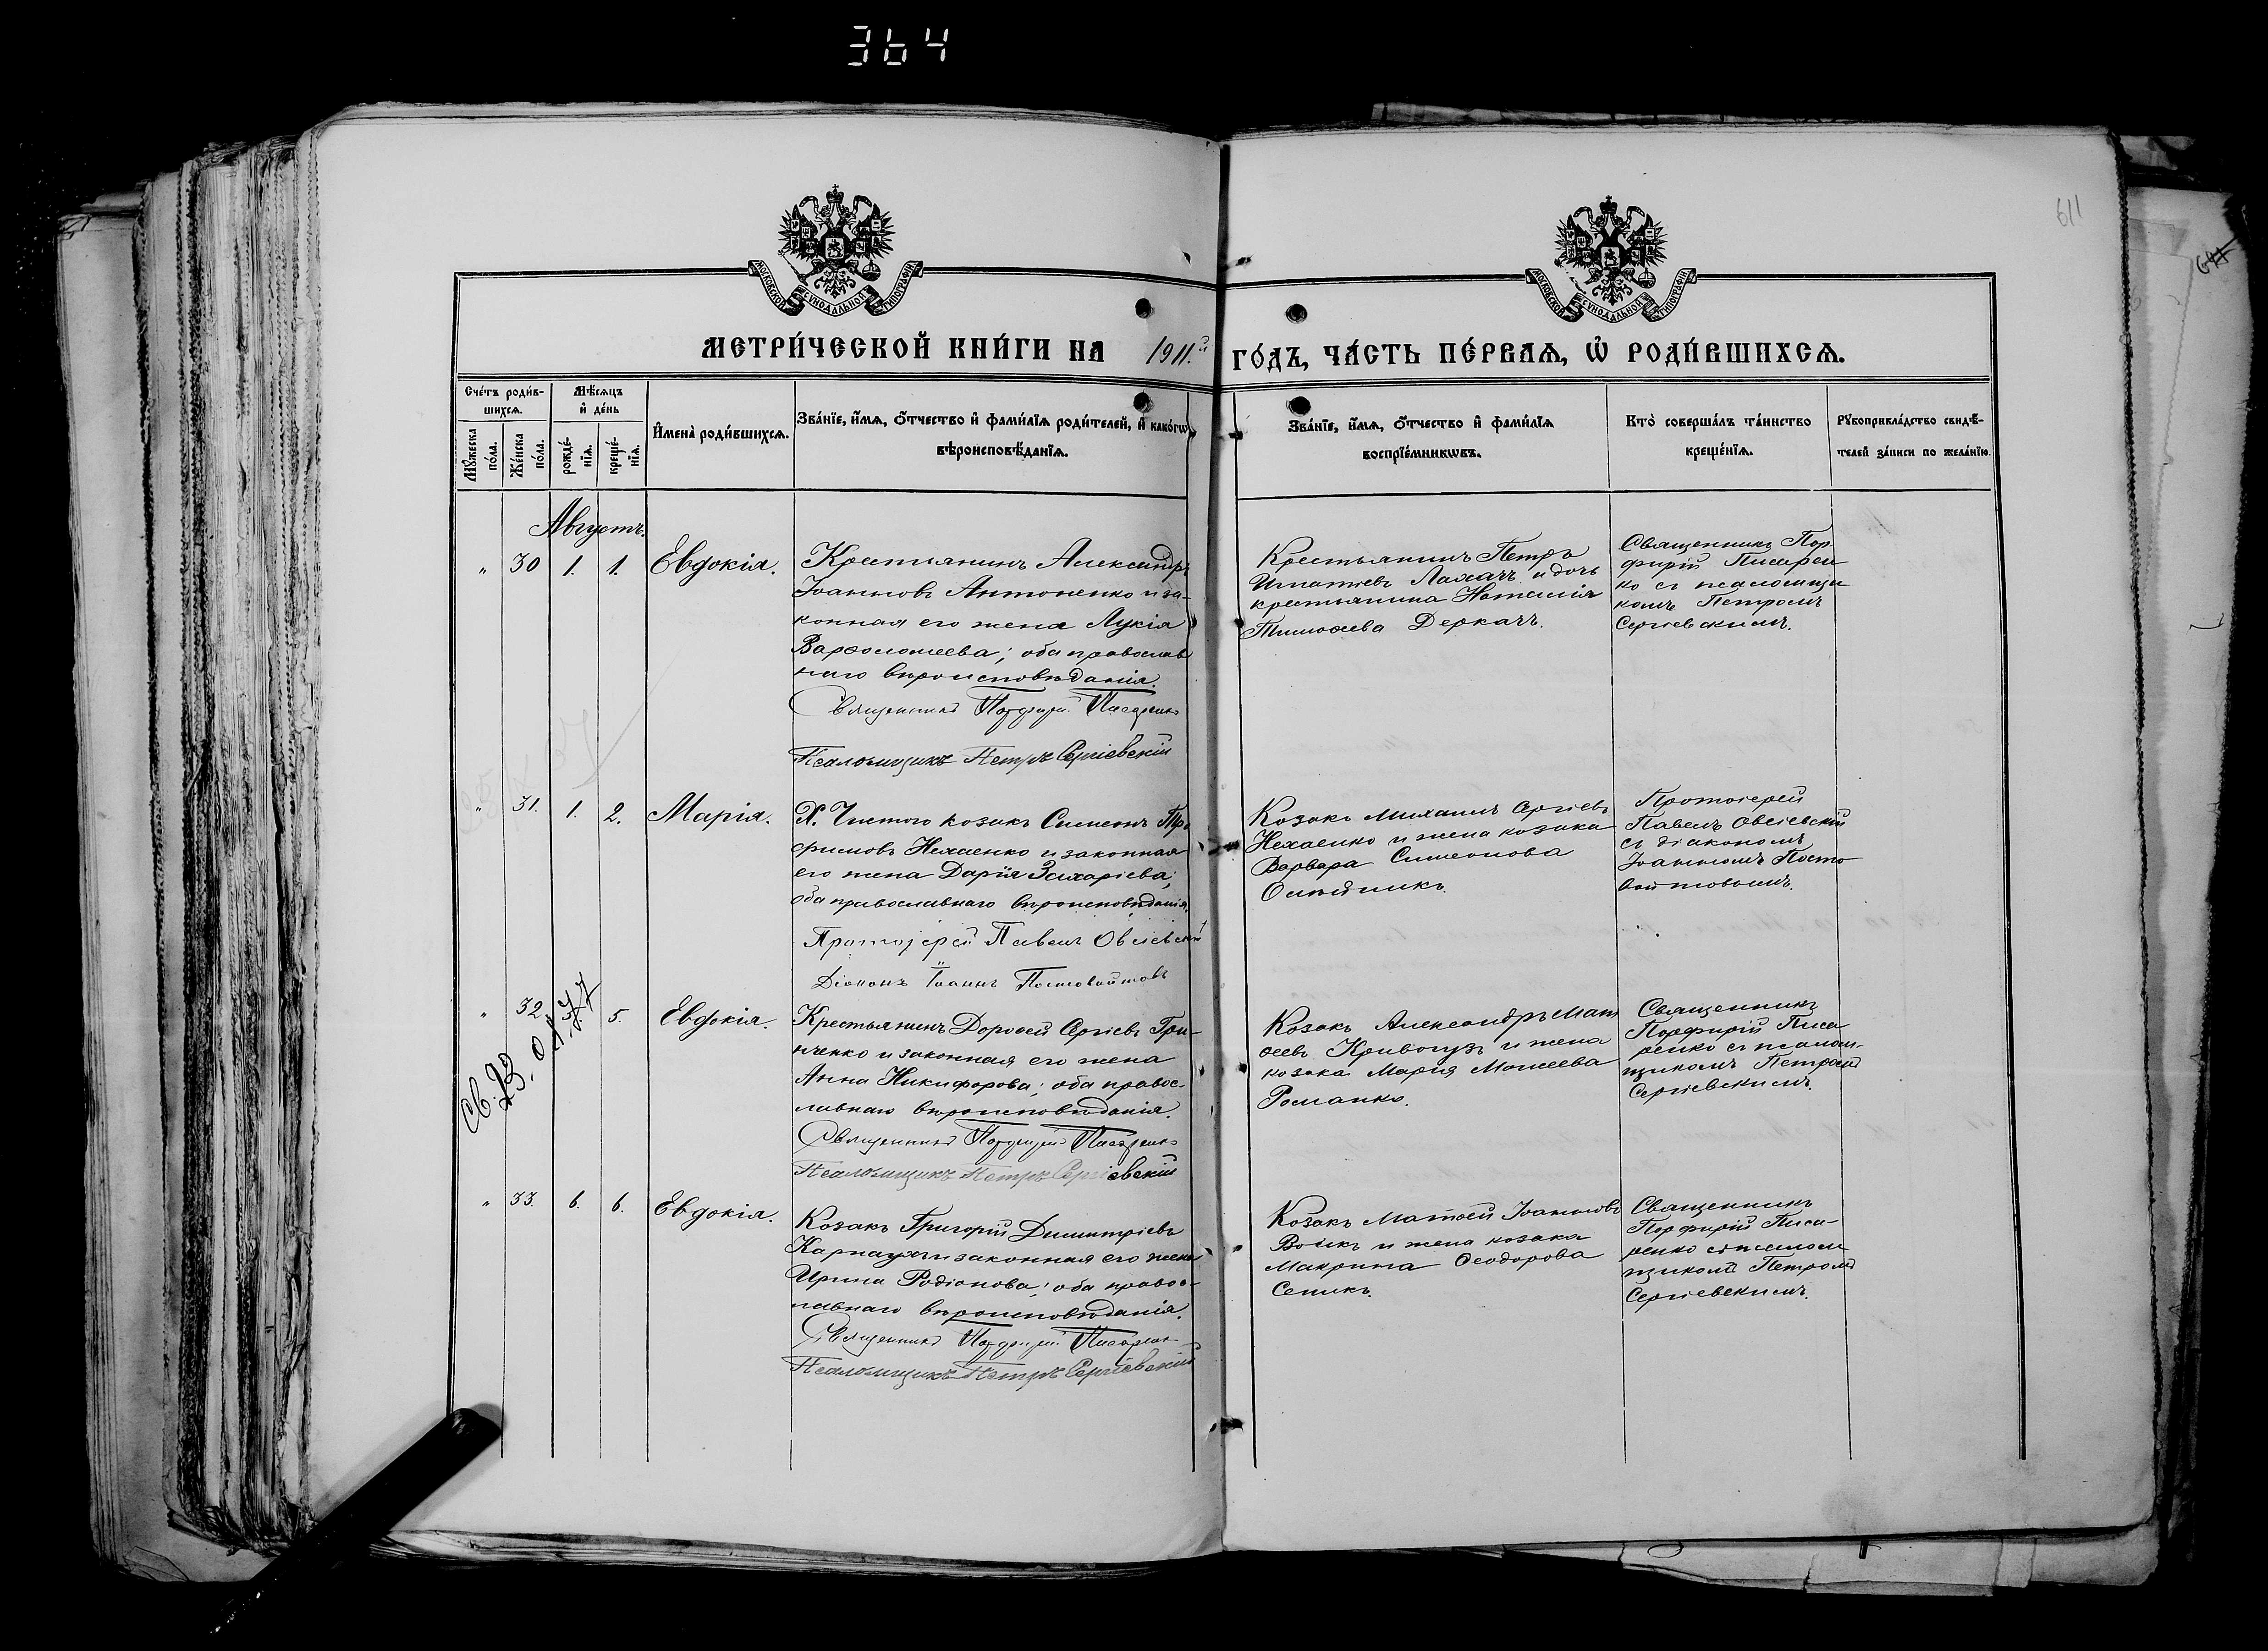 364
611
МОСКОВСКОЙ СѴНОДАЛЬНОЙ ТИПОГРАФІИ
МОСКОВСКОЙ СѴНОДАЛЬНОЙ ТИПОГРАФІИ
МЕТРИ́ЧЕСКОЙ КНИ́ГИ НА 1911.й ГО́ДЪ, ЧА́СТЬ ПЕ́РВАѦ, Ѡ҆ РОДИ́ВШИХСѦ.
Сче́тъ роди́в-
шихсѧ.
Мꙋ́жеска по́ла.
Же́нска по́ла.
Мѣ́сѧцъ
и҆ де́нь
рожде́-
нїѧ.
креще́-
нїѧ.
И҆мена̀ роди́вшихсѧ.
Зва́нїе, и҆́мѧ, ѻ҆́тчество и҆ фами́лїѧ роди́телей, и҆ како́гѡ
вѣроисповѣ́данїѧ.
Зва́нїе, и҆́мѧ, ѻ҆́тчество и҆ фами́лїѧ
воспрїе́мникѡвъ.
Кто̀ соверша́лъ та́инство
креще́нїѧ.
Рꙋкоприкла́дство свидѣ́-
телей за́писи по жела́нїю.
Августъ.
" 30 1. 1. Евдокія.
Крестьянинъ Александръ
Іоанновъ Антоненко и за-
конная его жена Лукія
Варѳоломеева; оба православ
наго вѣроисповѣданія.
Священникъ Порфирій Писаренко
Псаломщикъ Петръ Сергіевскій
Крестьянинъ Петръ
Игнатіевъ Лахачъ и дочь
крестьянина Наталія
Тимоѳеева Деркачъ.
Священникъ Пор-
фирій Писарен
ко съ псаломщи
комъ Петромъ
Сергіевскимъ.
" 31. 1. 2. Марія.
Х. Чистого козакъ Симеонъ Тро
фимовъ Нехаенко и законная
его жена Дарія Захаріева;
оба православнаго вѣроисповѣданія.
Протоіерей Павелъ Овсіевскій
Діаконъ Іоаннъ Постовойтовъ
Козакъ Михаилъ Сергіевъ
Нехаенко и жена козака
Варвара Симеонова
Олѣйникъ.
Протоіерей
Павелъ Овсіевскій
съ діакономъ
Іоанномъ Посто
войтовымъ.
" 32 5. Евдокія.
Крестьянинъ Дороѳей Сергіевъ Гри-
нченко и законная его жена
Анна Никифорова; оба правос-
лавнаго вѣроисповѣданія.
Священникъ Порфирій Писаренко
Псаломщикъ Петръ Сергіевскій
Козакъ Александръ Мат
ѳеевъ Кривогузъ и жена
козака Марія Моисеева
Романко.
Священникъ
Порфирій Писа
ренко съ псалом-
щикомъ Петромъ
Сергіевскимъ.
" 33. 6. 6. Евдокія.
Козакъ Григорій Димитріевъ
Карнаухъ и законная его жена
Ирина Родіонова; оба правос-
лавнаго вѣроисповѣданія.
Священникъ Порфирій Писаренко
Псаломщикъ Петръ Сергіевскій
Козакъ Матѳей Іоанновъ
Воикъ и жена козака
Макрина Ѳеодорова
Сеникъ.
Священникъ
Порфирій Писа-
ренко съ псалом
щикомъ Петромъ
Сергіевскимъ.